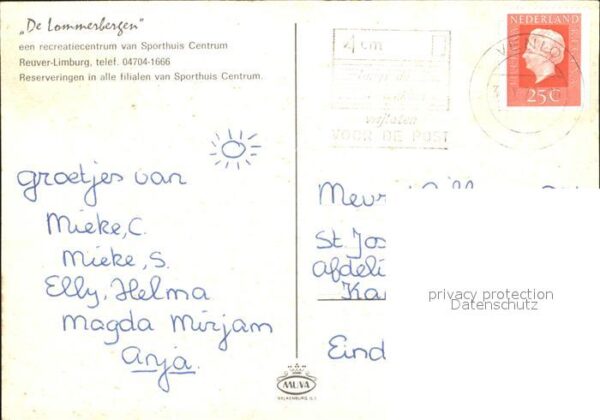 „De Lommerbergen”
een recreatiecentrum van Sporthuis Centrum
Reuver-Limburg, telef. 04704-1666
Reserveringen in alle filialen van Sporthuis Centrum.
4 cm
vrijlaten
VOOR DE POST
VENLO
NEDERLAND
25c
groetjes van
Mieke, C.
Mieke, S.
Elly, Helma
Magda Mirjam
Anja.
Mevr
St. Jos
afdeli
Ka
Eind
privacy protection
Datenschutz
MUVA
VALKENBURG (L.)